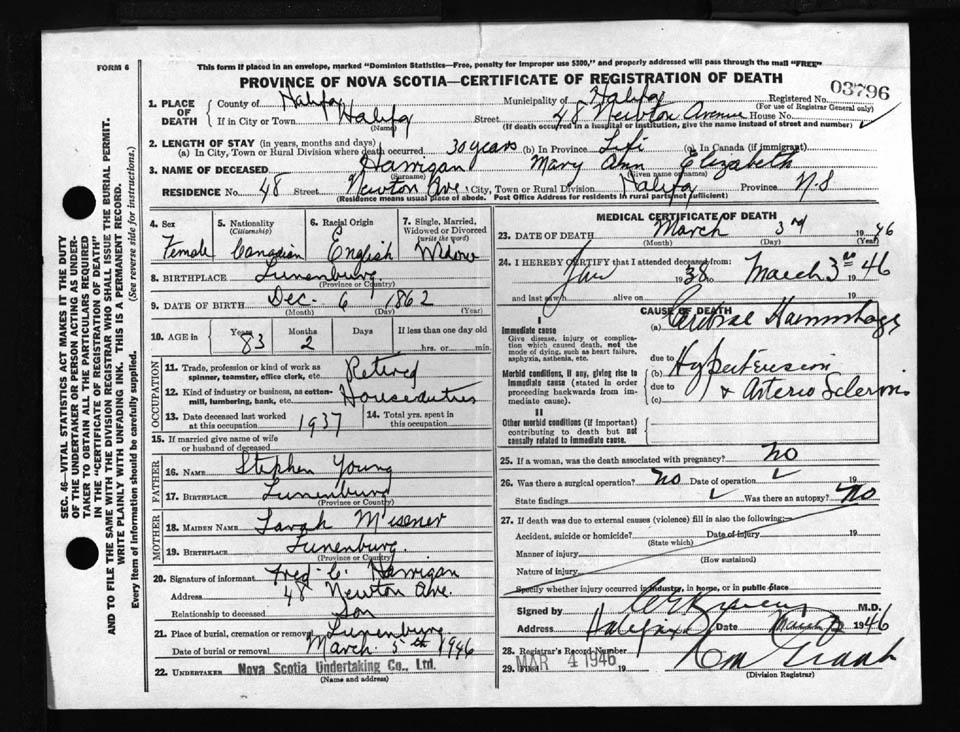 FORM 6
This form if placed in an envelope, marked "Dominion Statistics—Free, penalty for improper use $300," and properly addressed will pass through the mail "FREE"
PROVINCE OF NOVA SCOTIA—CERTIFICATE OF REGISTRATION OF DEATH
03796
1. PLACE OF DEATH { County of Halifax Municipality of Halifax Registered No. (For use of Registrar General only)
If in City or Town Halifax (Name) Street 48 Newton Avenue House No.
(If death occurred in a hospital or institution, give the name instead of street and number)
2. LENGTH OF STAY (in years, months and days)
(a) In City, Town or Rural Division where death occurred 30 years (b) In Province Life (c) In Canada (if immigrant)
3. NAME OF DECEASED Harrigan Mary Ann Elizabeth
(Surname) (Given name or names)
RESIDENCE No. 48 Street Newton Ave. City, Town or Rural Division Halifax Province N.S
(Residence means usual place of abode. Post Office Address for residents in rural parts not sufficient)
4. Sex Female
5. Nationality (Citizenship) Canadian
6. Racial Origin English
7. Single, Married, Widowed or Divorced (write the word) Widow
8. BIRTHPLACE Lunenburg.
(Province or Country)
9. DATE OF BIRTH Dec. 6 1862
(Month) (Day) (Year)
10. AGE in { Years 83 Months 2 Days If less than one day old hrs. or min.
OCCUPATION
11. Trade, profession or kind of work as spinner, teamster, office clerk, etc. Retired
12. Kind of industry or business, as cotton-mill, lumbering, bank, etc. Houseduties
13. Date deceased last worked at this occupation 1937
14. Total yrs. spent in this occupation
15. If married give name of wife or husband of deceased
FATHER
16. NAME Stephen Young
17. BIRTHPLACE Lunenburg
(Province or Country)
MOTHER
18. MAIDEN NAME Sarah Misener
19. BIRTHPLACE Lunenburg.
(Province or Country)
20. Signature of informant Fred C. Harrigan
Address 48 Newton Ave.
Relationship to deceased Son
21. Place of burial, cremation or removal Lunenburg
Date of burial or removal March 5th 1946
22. UNDERTAKER Nova Scotia Undertaking Co., Ltd.
(Name and address)
MEDICAL CERTIFICATE OF DEATH
23. DATE OF DEATH March 3rd 1946
(Month) (Day) (Year)
24. I HEREBY CERTIFY that I attended deceased from:
Jan 1938 March 3rd 1946
and last saw h alive on 19
CAUSE OF DEATH
I
Immediate cause
Give disease, injury or complication which caused death, not the mode of dying, such as heart failure, asphyxia, asthenia, etc.
(a) Cerebral Haemorrhage
due to
Morbid conditions, if any, giving rise to immediate cause (stated in order proceeding backwards from immediate cause).
(b) Hypertension
due to
(c) & Arterio Sclerosis
II
Other morbid conditions (if important) contributing to death but not causally related to immediate cause.
25. If a woman, was the death associated with pregnancy? No
26. Was there a surgical operation? No Date of operation
State findings Was there an autopsy? No
27. If death was due to external causes (violence) fill in also the following:—
Accident, suicide or homicide? Date of injury 19
(State which)
Manner of injury
(How sustained)
Nature of injury
Specify whether injury occurred in industry, in home, or in public place
Signed by M.D.
Address Halifax Date March 1946
28. Registrar's Record Number
29. Filed MAR 4 1946 19
(Division Registrar)
SEC. 46—VITAL STATISTICS ACT MAKES IT THE DUTY
OF THE UNDERTAKER OR PERSON ACTING AS UNDER-
TAKER TO OBTAIN ALL THE PARTICULARS REQUIRED
IN THE "CERTIFICATE OF REGISTRATION OF DEATH"
AND TO FILE THE SAME WITH THE DIVISION REGISTRAR WHO SHALL ISSUE THE BURIAL PERMIT.
WRITE PLAINLY WITH UNFADING INK. THIS IS A PERMANENT RECORD.
Every item of information should be carefully supplied. (See reverse side for instructions.)